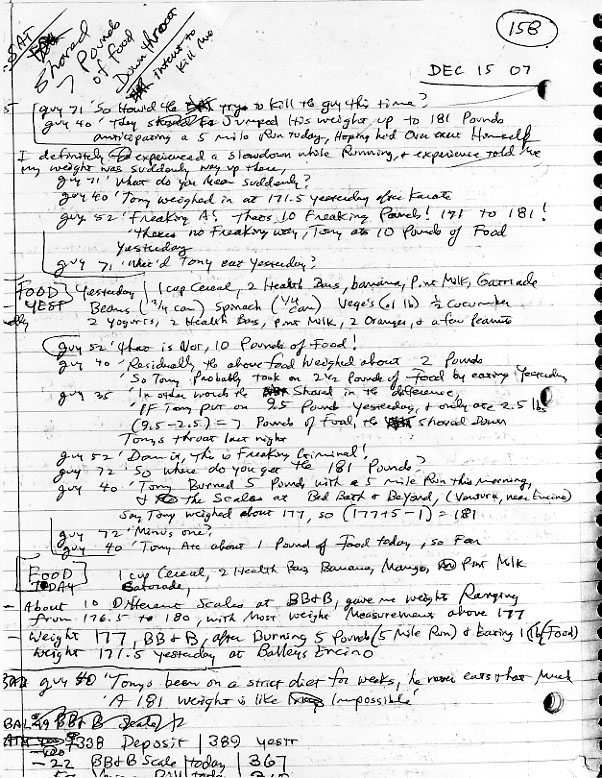 15B
SAT
shoved
7 Pounds
of food
Down throat
intent to
Kill me
DEC 15 07
guy 71 'So How'd the try to Kill the guy this time?
guy 40 'They Jumped His weight up to 181 Pounds
anticipating a 5 mile Run today, Hoping he'd Over exert Himself
I definitely experienced a slowdown while Running, & experience told me
my weight was suddenly way up there,
guy 71 'What do you Mean suddenly?
guy 40 'Tony weighed in at 171.5 yesterday after Karate
guy 52 'Freaking A! Thats 10 Freaking Pounds! 171 to 181!
'Theres no Freaking way, Tony ate 10 Pounds of Food
Yesterday
guy 71 'What'd Tony eat Yesterday?
FOOD Yesterday | 1 cup Cereal, 2 Health Bars, banana, Pint Milk, Gatorade
YEST Beans (3/4 can) Spinach (1/4 can) Vege's (of lb) 1/2 Cucumber
2 Yogurts, 2 Health Bars, pint Milk, 2 Oranges, & a few Peanuts
guy 52 'That is Not, 10 Pounds of Food!
guy 40 'Residually the above food Weighed about 2 Pounds
'So Tony Probably took on 2 1/2 Pounds of Food by eating Yesterday
guy 35 'In other words the Shoved in the difference,
'IF Tony put on 9.5 Pounds Yesterday, & only ate 2.5 lb
(9.5-2.5) = 7 Pounds of Food, the shoved Down
Tonys throat last night
guy 52 'Damit, This is Freaking Criminal!
guy 72 'So where do you get the 181 Pounds?
guy 40 'Tony Burned 5 Pounds with a 5 mile Run this morning,
& the Scales at Bed Bath & Beyond, (Ventura, near Encino)
Say Tony weighed about 177, so (177+5-1) = 181
guy 72 'Minus one?
guy 40 'Tony Ate about 1 Pound of Food today, so Far
FOOD 1 cup Cereal, 2 Health Bars Banana, Mango, Pint Milk
TODAY Gatorade,
- About 10 Different Scales at BB&B, gave me weight Ranging
from 176.5 to 180, with Most Weight Measurement above 177
- Weight 177, BB&B, after Burning 5 Pounds (5 Mile Run) & Eating 1 (lb Food)
Weight 171.5 yesterday at Balleys Encino
guy 40 'Tonys been on a strict diet for weeks, he never eats that Much
'A 181 weight is like Impossible'
BB&B Scale
338 Deposit | 389 yestr
-22 BB&B Scale | today | 367